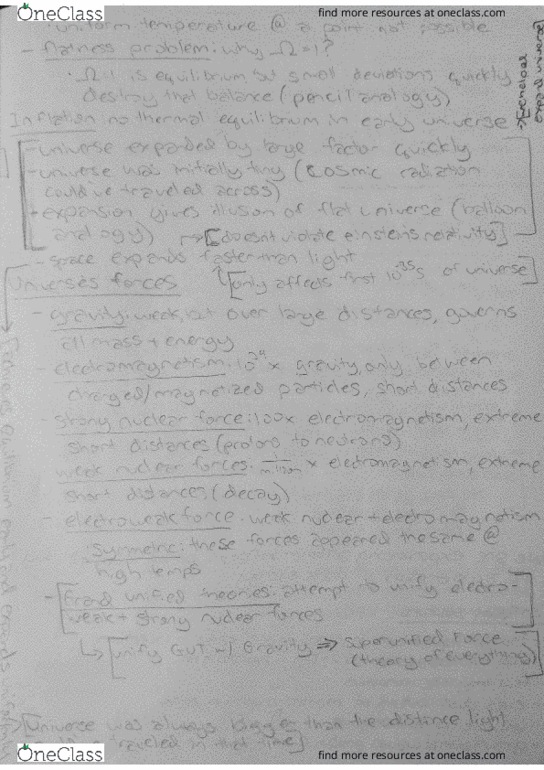 OneClass
find more resources at oneclass.com
uniform temperature @ a point not possible
- flatness problem: why Ω=1?
· Ω=1 is equilibrium but small deviations quickly
destroy that balance (pencil analogy)
Inflation: no thermal equilibrium in early universe
-universe expanded by large factor quickly
-universe was initially tiny (cosmic radiation
could've traveled across)
-expansion gives illusion of flat universe (balloon
analogy) → [doesn't violate einsteins relativity]
- space expands faster than light
[only affects first 10^-35 s of universe]
Universes forces
- gravity: weak, but over large distances, governs
all mass + energy
- electromagnetism: × gravity, only between
charged/magnetized particles, short distances
- strong nuclear force: 100x electromagnetism, extreme
short distances (protons to neutrons)
weak nuclear forces: 1/million × electromagnetism, extreme
short distances, (decay)
- electroweak force: weak nuclear + electromagnetism
symmetric: these forces appeared the same @
high temps
- [grand unified theories: attempt to unify electro-
weak + strong nuclear forces
↳ [unify GUT w/ Gravity ⇒ superunified Force
(theory of everything)]
[Universe was always bigger than the distance light
traveled in that time]
OneClass
find more resources at oneclass.com